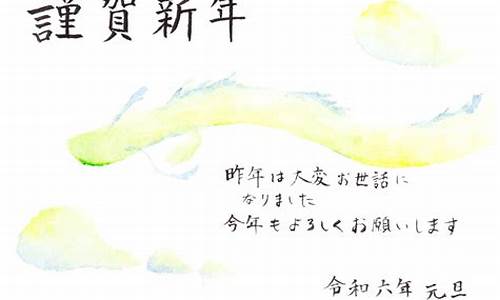 謹賀新年
昨年は大変お世話に
なりました
今年もよろしくお願いします
令和六年 元旦